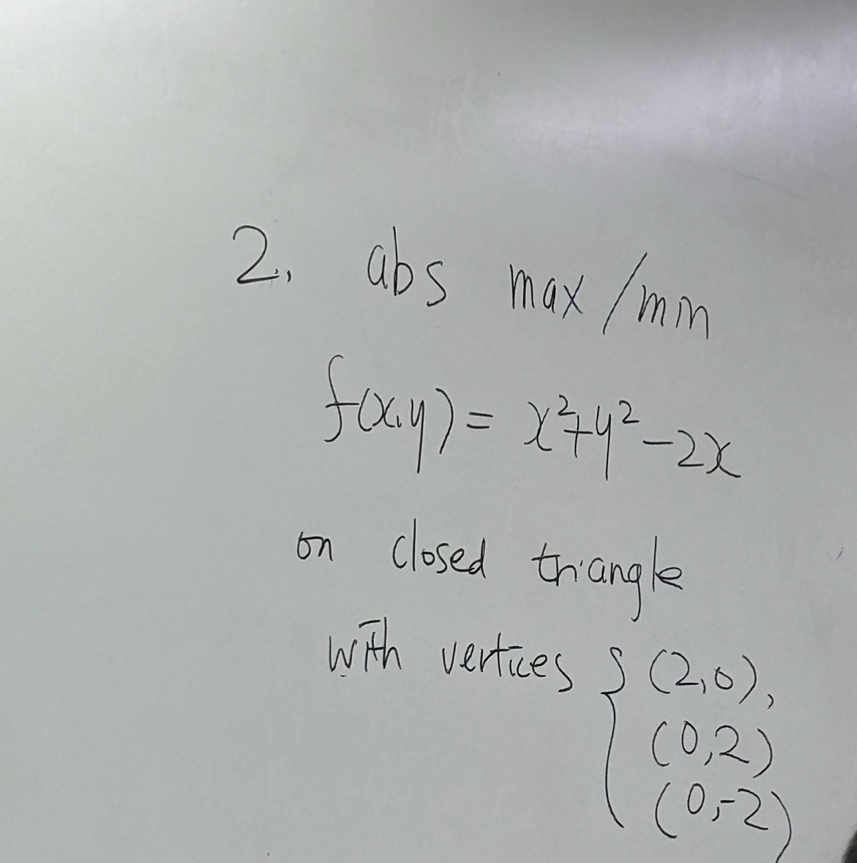 2. abs max/min
f(x,y) = x²+y²-2x
on closed triangle
with vertices { (2,0),
(0,2)
(0,-2)